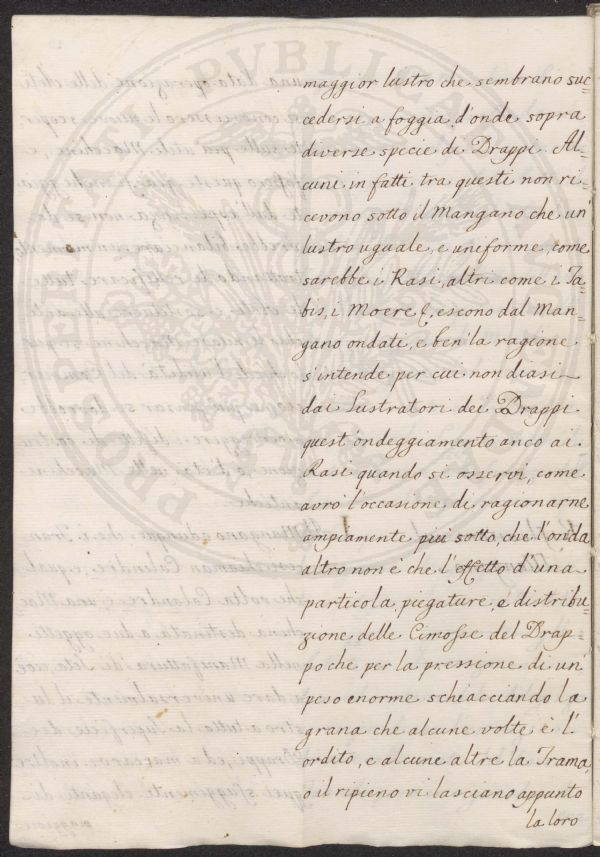 maggior lustro che sembrano suc=
cedersi a foggia d'onde sopra
diverse specie di Drappi. Al=
cuni in fatti tra questi non ri=
cevono sotto il Mangano che un'
lustro uguale, e uneforme, come
sarebbe i Rasi, altri come i Ta=
bis, i Moere &, escono dal Man=
gano ondati, e ben' la ragione
s'intende per cui non diasi
dai Lustratori dei Drappi
quest'ondeggiamento anco ai
Rasi quando si osservi, come
avrò l'occasione di ragionarne
ampiamente più sotto, che l'onda
altro non è che l'effetto d'una
particola, piegature, e distribu=
zione delle Cimosse del Drap=
po che per la pressione di un'
peso enorme schiacciando la
grana che alcune volte è l'
ordito, e alcune altre la Trama,
o il ripieno vi lasciano appunto
la loro